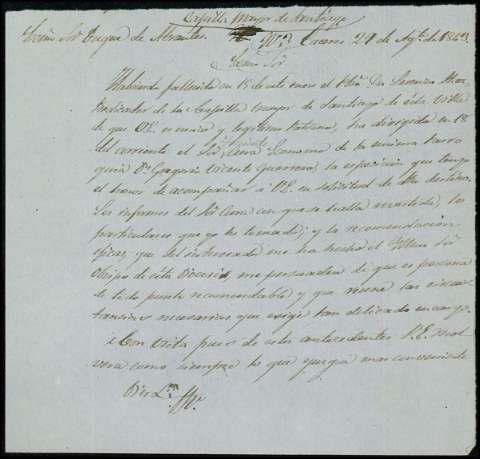 Capilla mayor de Santiago
Excmo Sor Duque de Abrantes. Caceres 21 de Agto de 1849
Excmo Sor
Habiendo fallecido en 15 de este mes el Pbro Dn Lorenzo
Sacristan de la Capilla mayor de Santiago de esta Villa
de que V.E. es unico y legitimo Patrono, ha dirigido en 18
del corriente el Sor Teniente Cura Economo de la misma Parro
quia Dn Gregorio Vicente Guerrero, la esposicion que tengo
el honor de acompañar a V.E. en solicitud de dho destino.
Los informes del Sor Cura con que se halla revestida, los
particulares que yo he tomado; y la recomendacion
eficaz que del interesado me ha hecho el Illmo Sor
Obispo de esta Diocesis, me persuaden de que es persona
de todo punto recomendable y que reune las circuns
tancias necesarias que exige tan delicado encargo.
Con vista pues de estos antecedentes V.E. resol
vera como siempre lo que juzgue mas conveniente
Dios